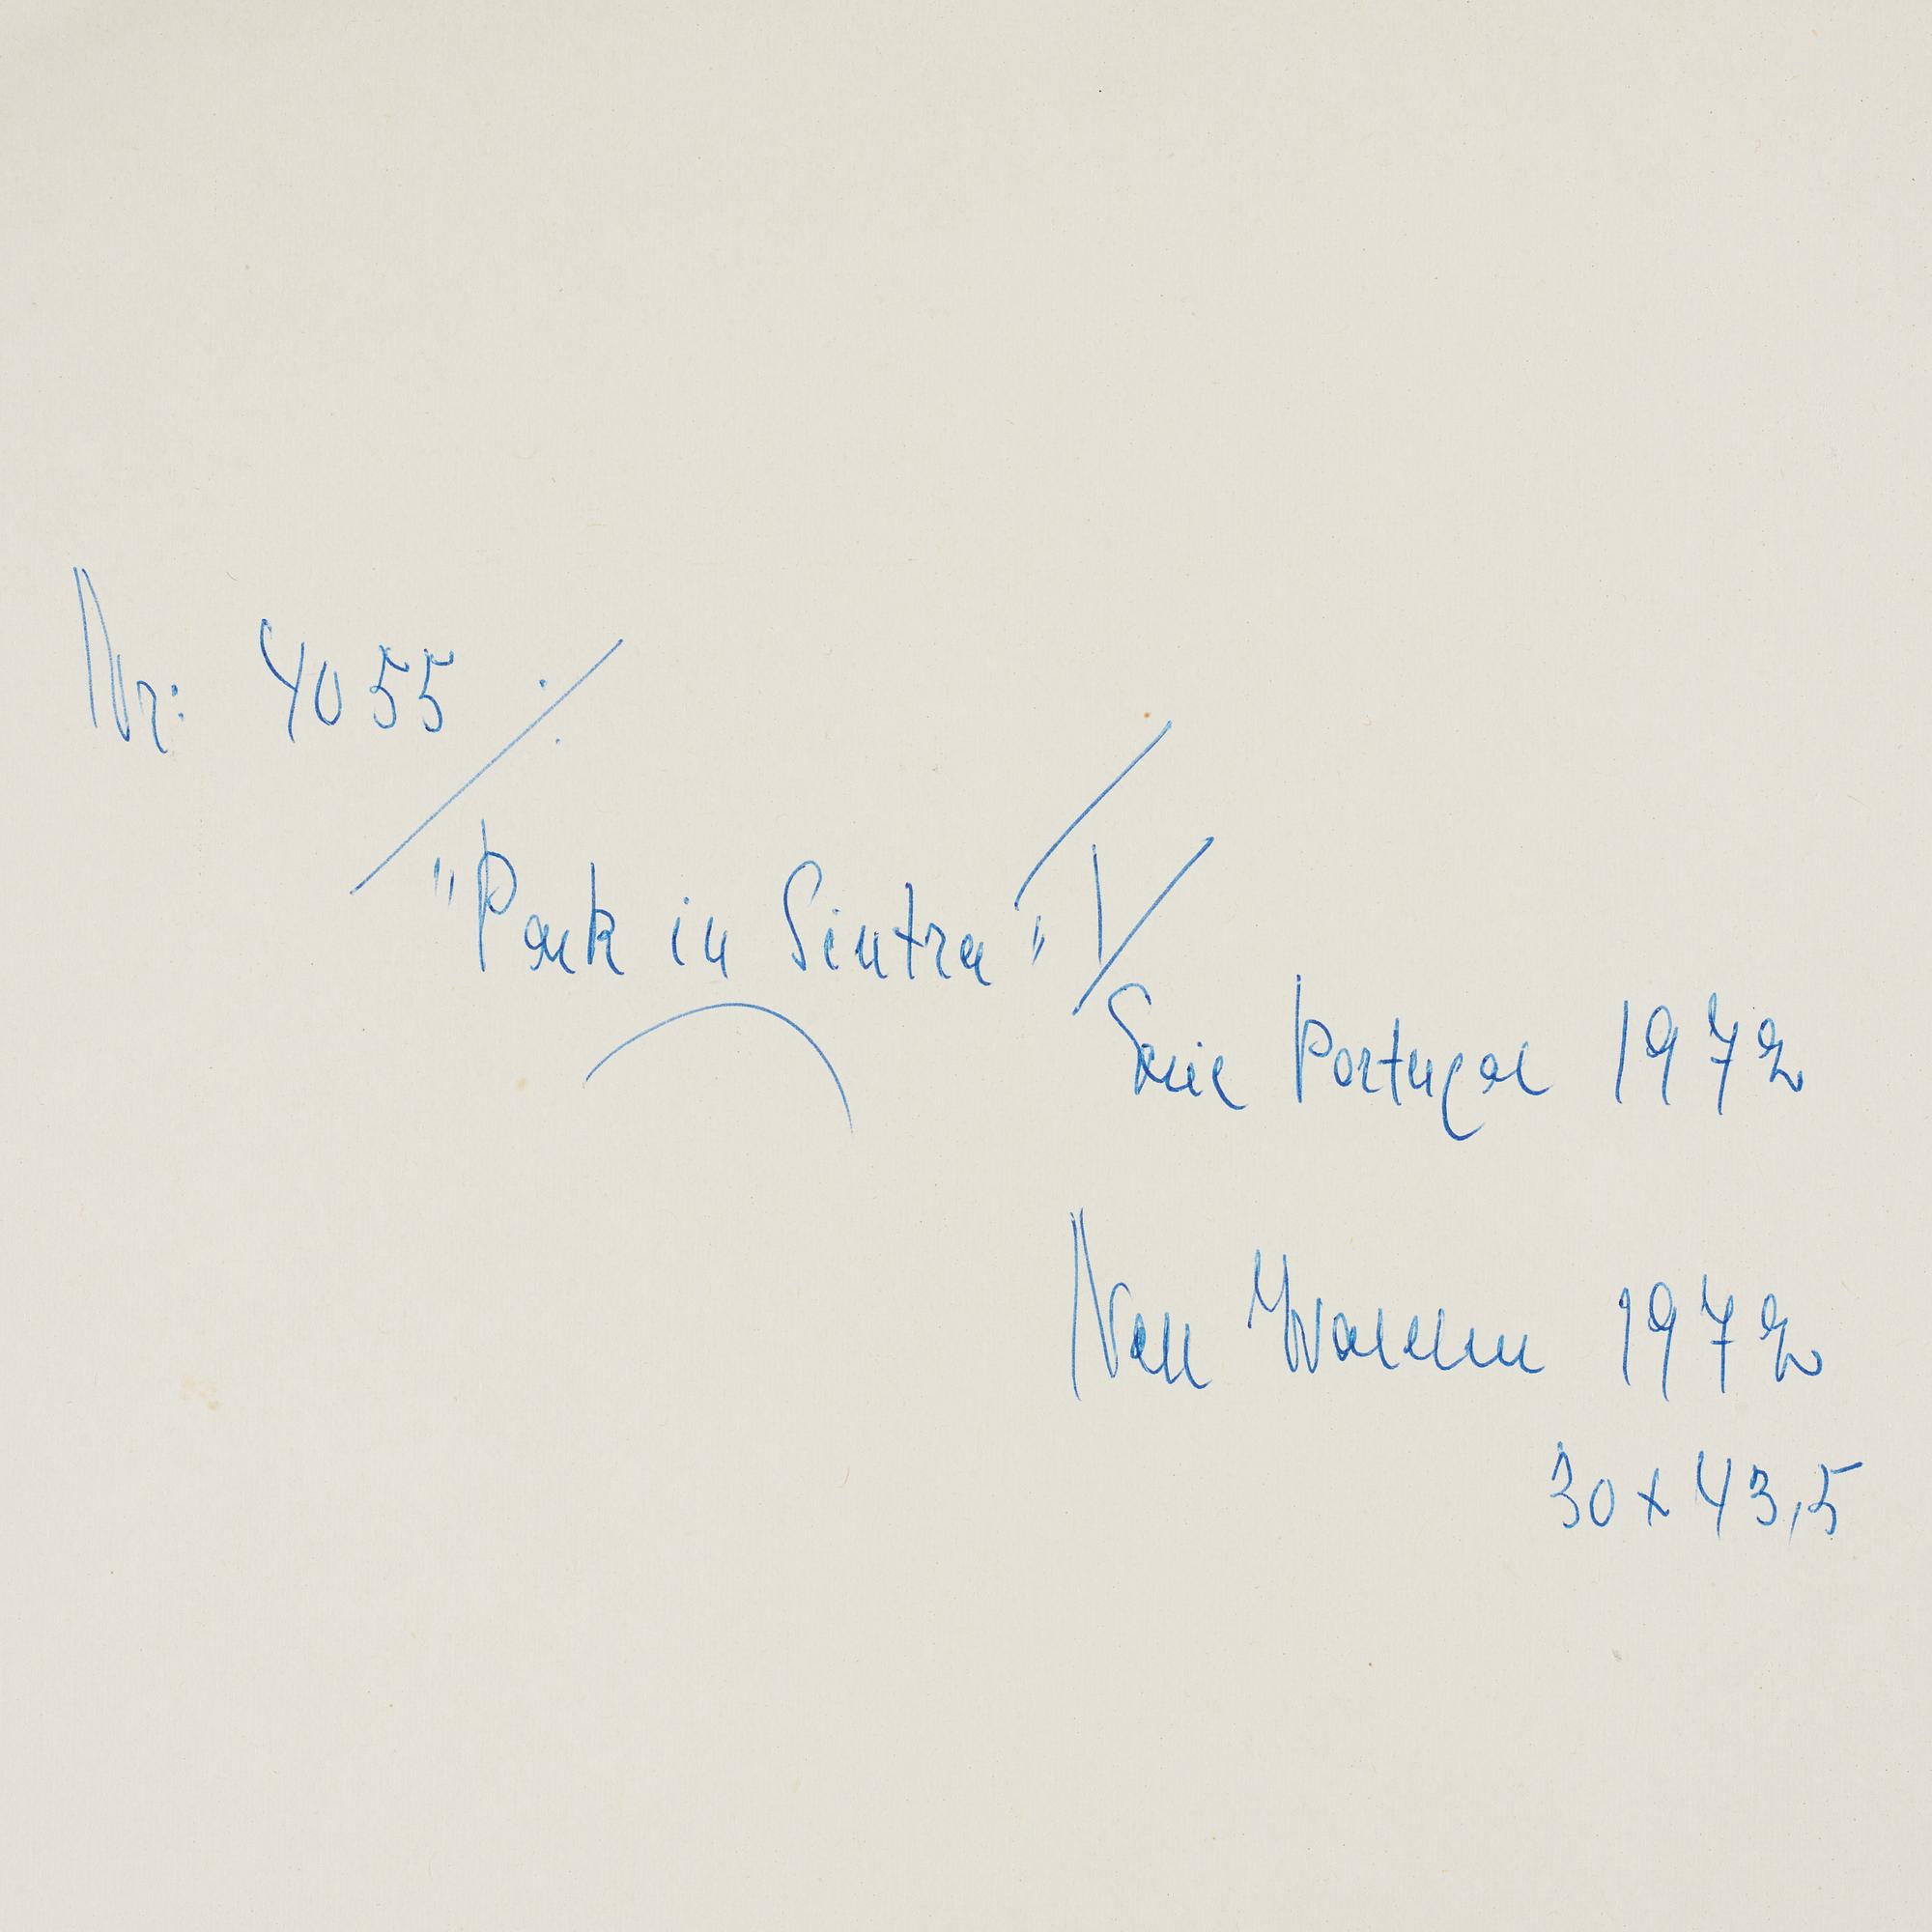 Nr: 4055
"Park in Sintra" V
Serie Portugal 1972
Nell Walden 1972
30 x 43,5